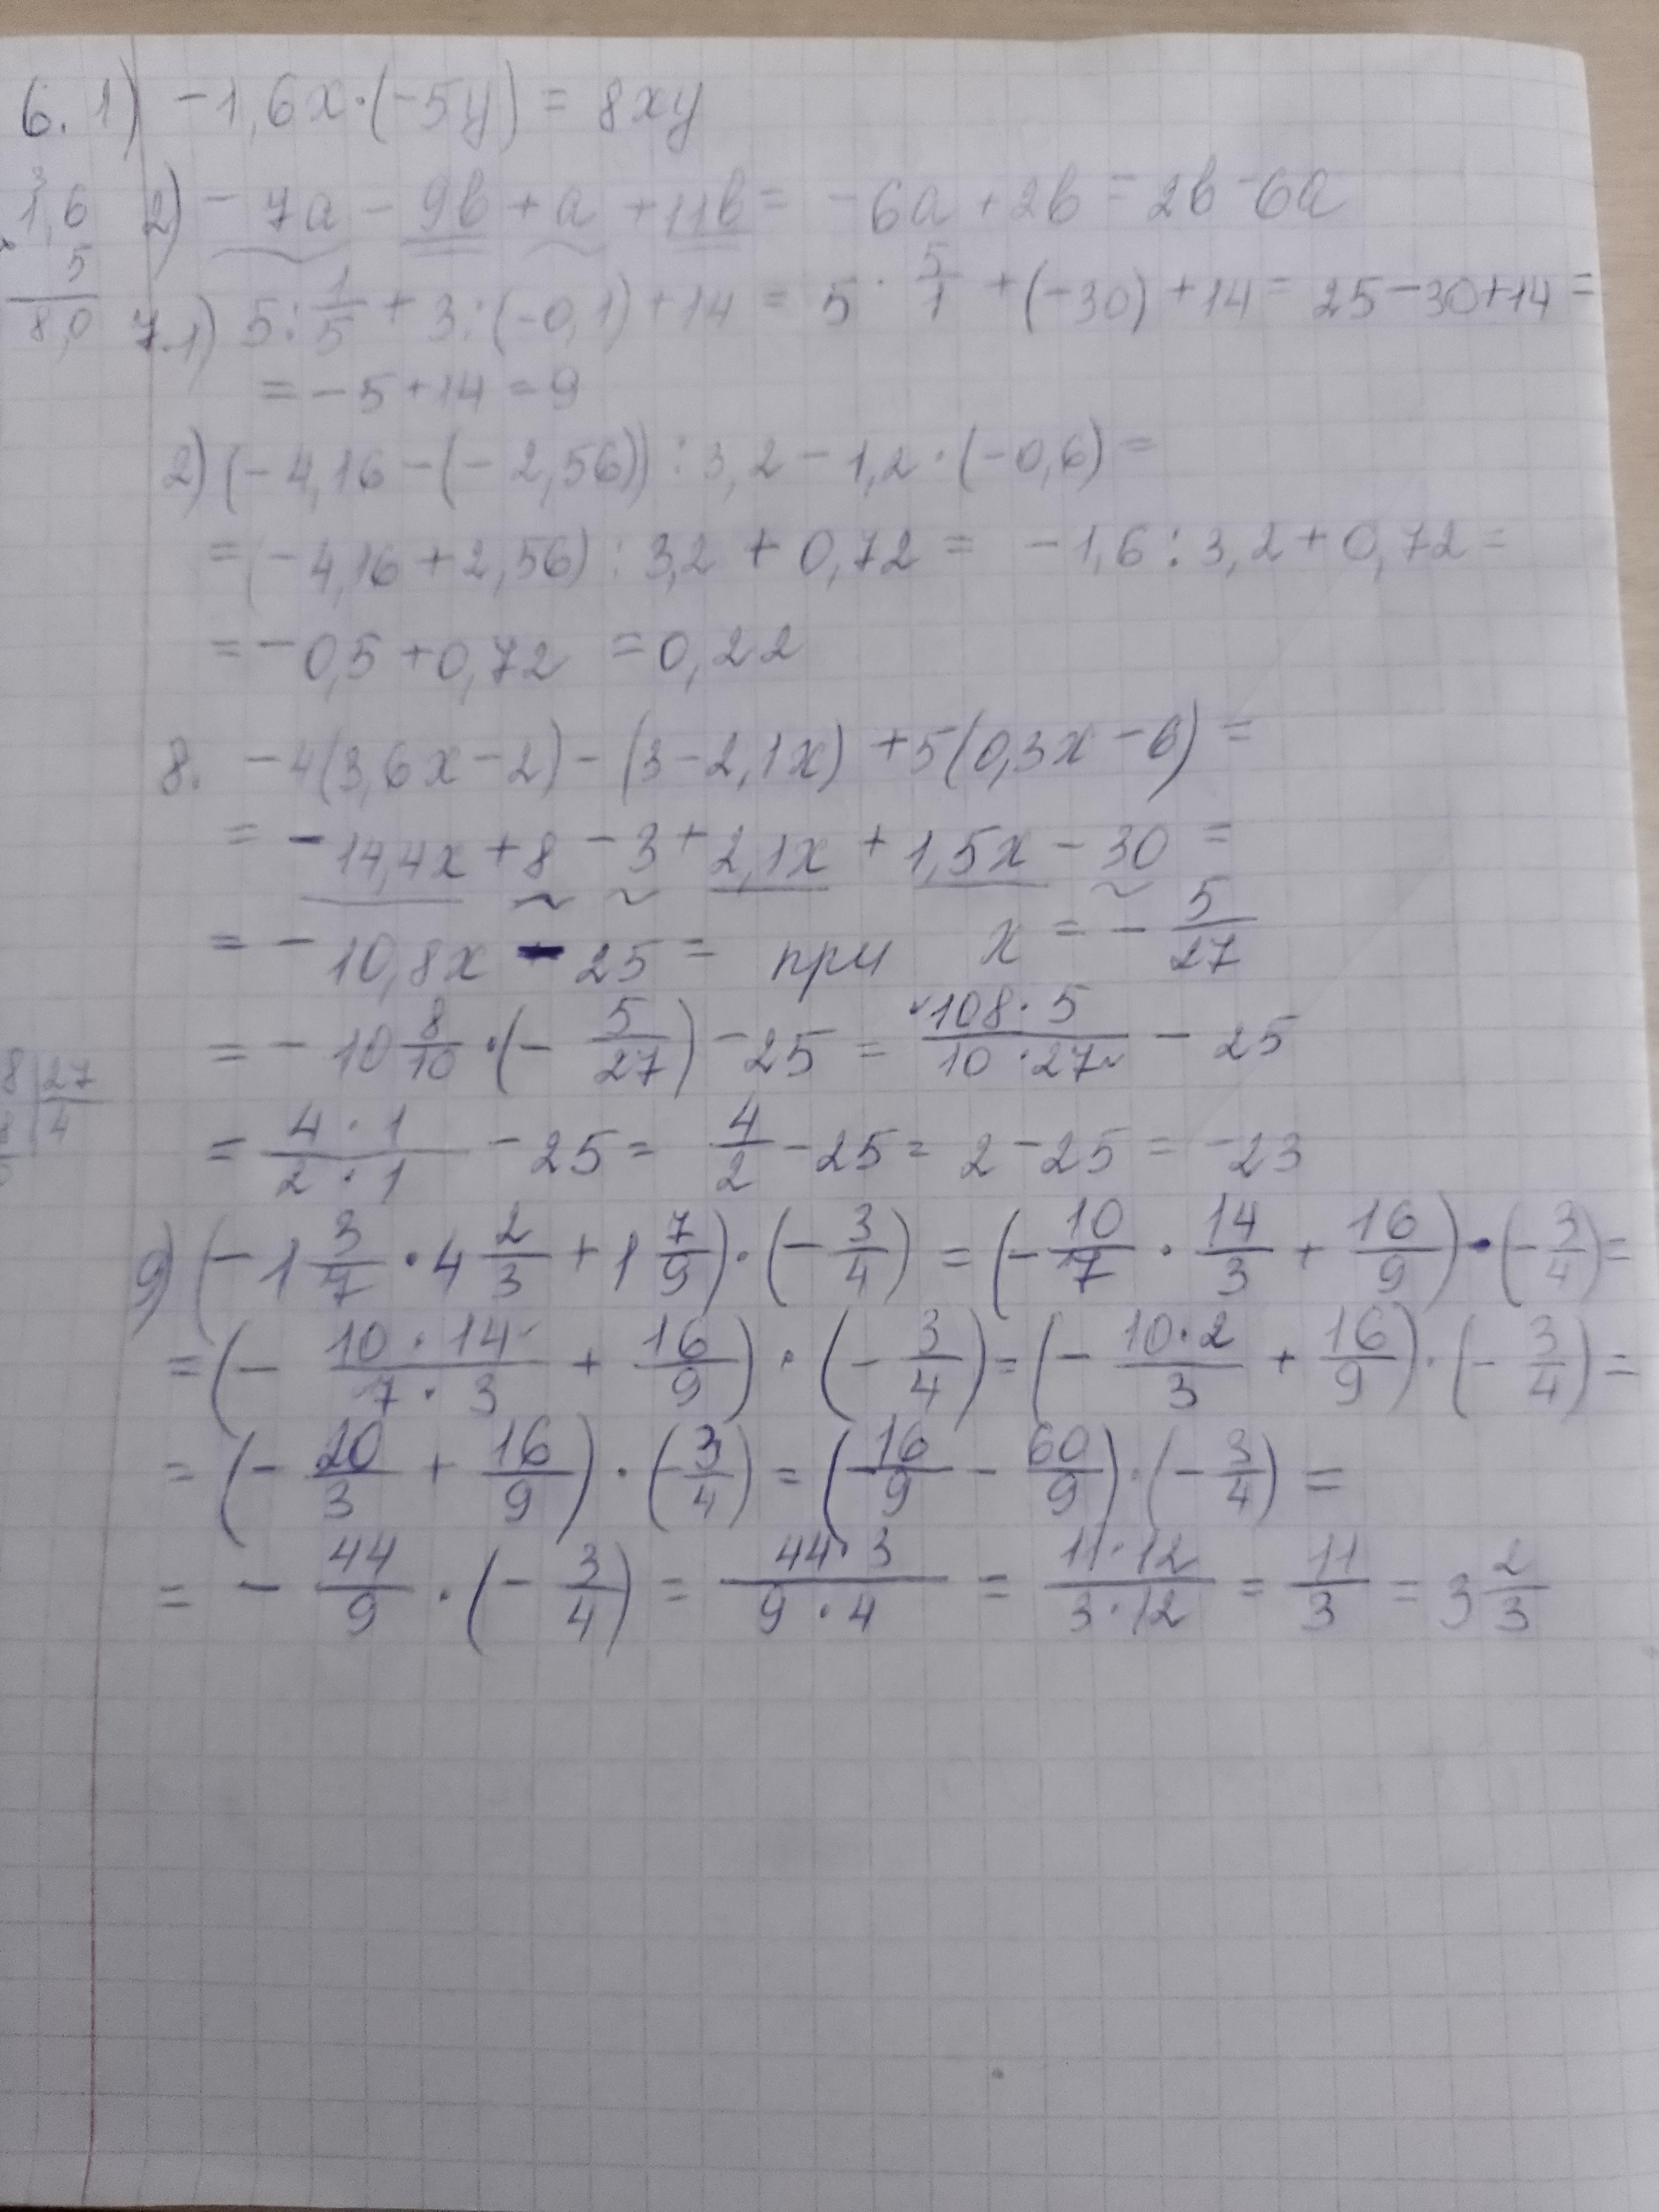 6. 1) -1,6x·(-5y) = 8xy
3
1,6
5
8,0
2) -7a - 9b + a + 11b = -6a + 2b = 2b - 6a
7. 1) 5 : 1/5 + 3 : (-0,1) + 14 = 5 · 5/1 + (-30) + 14 = 25 - 30 + 14 =
= -5 + 14 = 9
2) (-4,16 - (-2,56)) : 3,2 - 1,2 · (-0,6) =
= (-4,16 + 2,56) : 3,2 + 0,72 = -1,6 : 3,2 + 0,72 =
= -0,5 + 0,72 = 0,22
8. -4(3,6x - 2) - (3 - 2,1x) + 5(0,3x - 6) =
= -14,4x + 8 - 3 + 2,1x + 1,5x - 30 =
= -10,8x - 25 = при x = - 5/27
= -10 8/10 · (- 5/27) - 25 = 108·5/10·27 - 25
8 | 27
4
= 4·1/2·1 - 25 = 4/2 - 25 = 2 - 25 = -23
9) (-1 3/7 · 4 2/3 + 1 7/9) · (- 3/4) = (- 10/7 · 14/3 + 16/9) · (- 3/4) =
= (- 10·14/7·3 + 16/9) · (- 3/4) = (- 10·2/3 + 16/9) · (- 3/4) =
= (- 20/3 + 16/9) · (- 3/4) = (16/9 - 60/9) · (- 3/4) =
= - 44/9 · (- 3/4) = 44·3/9·4 = 11·12/3·12 = 11/3 = 3 2/3